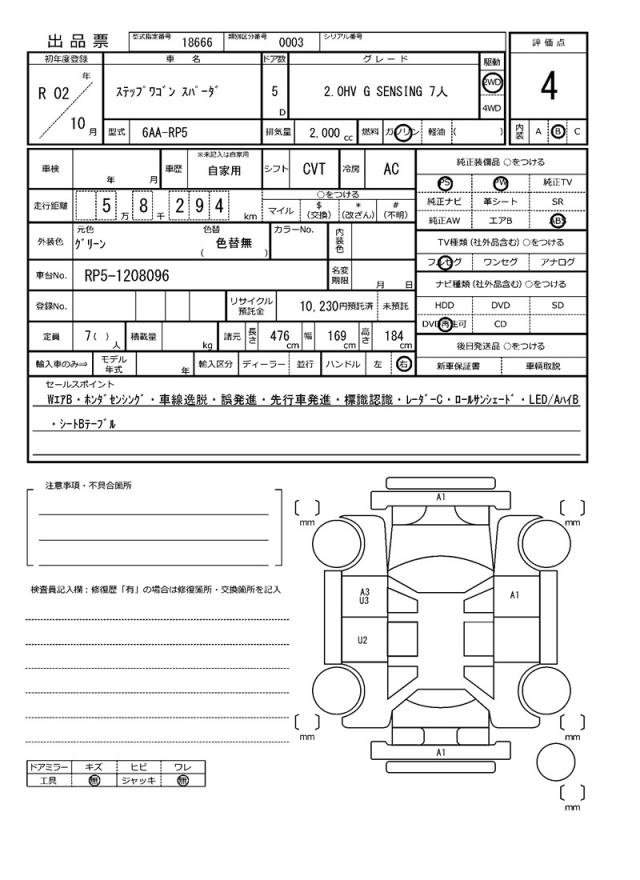 出品票 型式指定番号 18666 類別区分番号 0003 シリアル番号
初年度登録 車名 ドア数 グレード 駆動 評価点
R 02 年 10 月 ｽﾃｯﾌﾟﾜｺﾞﾝ ｽﾊﾟｰﾀﾞ 5 D 2.0HV G SENSING 7人 2WD 4WD 4
型式 6AA-RP5 排気量 2,000 cc 燃料 ガソリン 軽油 ( ) 内装 A B C
車検 年 月 車歴 ※未記入は自家用 自家用 シフト CVT 冷房 AC 純正装備品 ○をつける
PS PW 純正TV
走行距離 5 万 8 千 2 9 4 km ○をつける 純正ナビ 革シート SR
マイル $(交換) *(改ざん) #(不明) 純正AW エアB ABS
外装色 元色 ｸﾞﾘｰﾝ 色替 色替無 ( ) カラーNo. 内装色 TV種類 (社外品含む) ○をつける
フルセグ ワンセグ アナログ
車台No. RP5-1208096 名変期限 月 日 ナビ種類 (社外品含む) ○をつける
登録No. リサイクル預託金 10,230円預託済 未預託 HDD DVD SD
DVD再生可 CD
定員 7 ( ) 人 積載量 kg 諸元 長さ 476 cm 幅 169 cm 高さ 184 cm 後日発送品 ○をつける
輸入車のみ⇒ モデル年式 年 輸入区分 ディーラー 並行 ハンドル 左 右 新車保証書 車輌取説
セールスポイント
WｴｱB・ﾎﾝﾀﾞｾﾝｼﾝｸﾞ・車線逸脱・誤発進・先行車発進・標識認識・ﾚｰﾀﾞｰC・ﾛｰﾙｻﾝｼｪｰﾄﾞ・LED/AﾊｲB
・ｼｰﾄBﾃｰﾌﾞﾙ
注意事項・不具合箇所
検査員記入欄：修復歴「有」の場合は修復箇所・交換箇所を記入
A1
mm mm
A3
U3
A1
U2
mm mm
A1
mm
ドアミラー キズ ヒビ ワレ
工具 無 ジャッキ 無